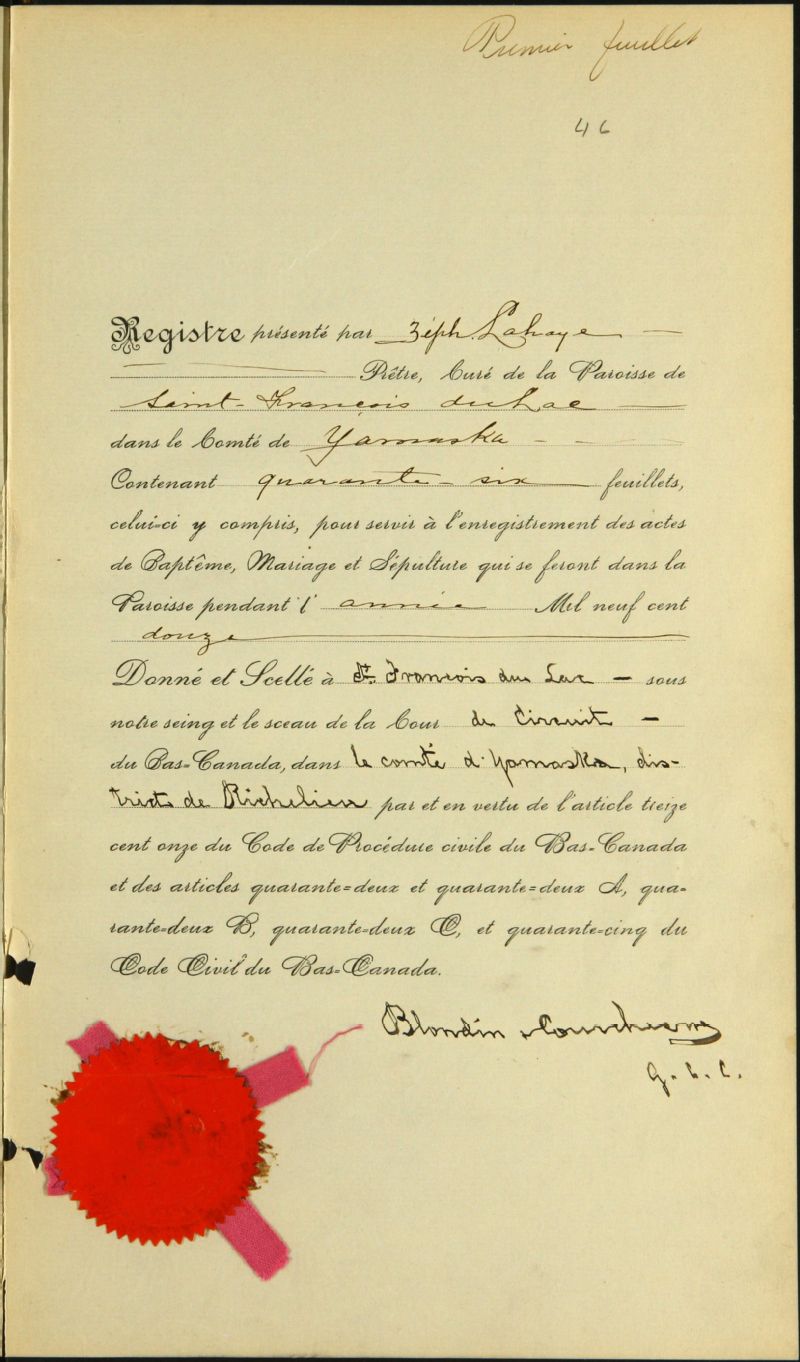 Premier feuillet
46
Registre présenté par Zéph. Lahaye
Prêtre, Curé de la Paroisse de
Saint-François du Lac
dans le Comté de Yamaska
Contenant quarante-six feuillets,
celui-ci y compris, pour servir à l'enregistrement des actes
de Baptême, Mariage et Sépulture qui se feront dans la
Paroisse pendant l'année Mil neuf cent
douze
Donné et Scellé à St. François du Lac — sous
notre seing et le sceau de la Cour de Circuit —
du Bas-Canada, dans le comté d'Yamaska, dis-
trict de Richelieu par et en vertu de l'article treize
cent onze du Code de Procédure civile du Bas-Canada
et des articles quarante-deux et quarante-deux A, qua-
rante-deux B, quarante-deux C, et quarante-cinq du
Code Civil du Bas-Canada.
Blondin
G. C. C.